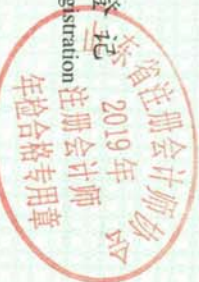 登记
gistration
东省注册会计师协
2019年
注册会计师
年检合格专用章